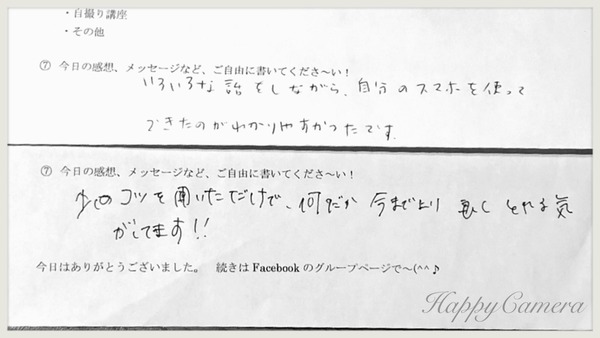 ・自撮り講座
・その他
⑦ 今日の感想、メッセージなど、ご自由に書いてくださ〜い！
いろいろな話をしながら、自分のスマホを使って
できたのがわかりやすかったです。
⑦ 今日の感想、メッセージなど、ご自由に書いてくださ〜い！
少しのコツを聞いただけで、何だか今までより 楽しく とれる気
がしてます!!
今日はありがとうございました。 続きは Facebook のグループページで〜(^^♪
HappyCamera